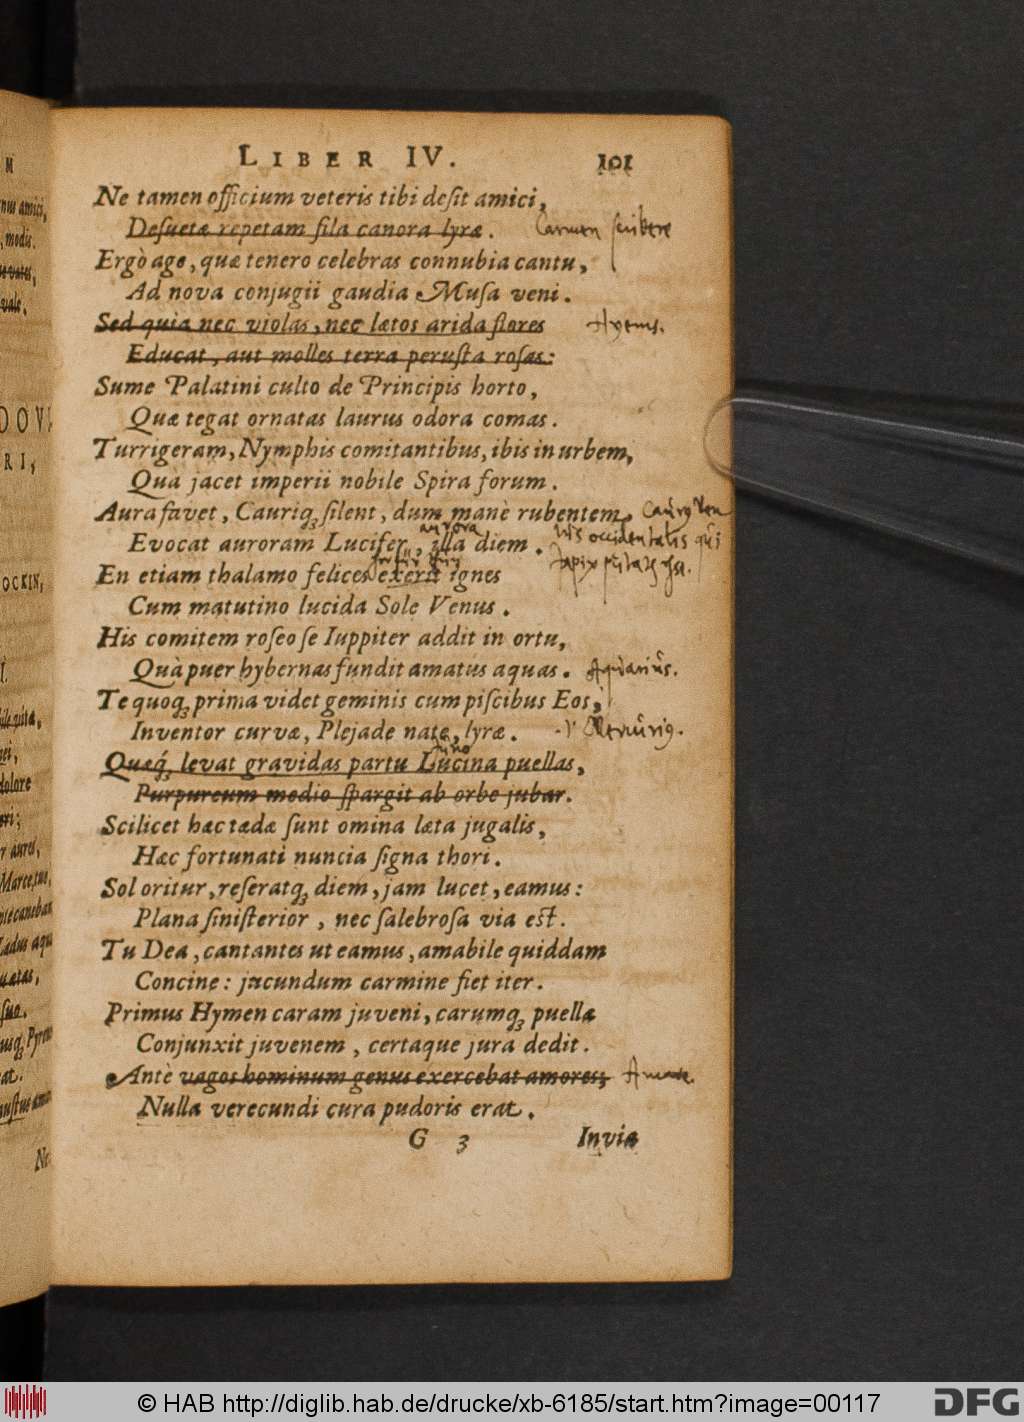 LIBER IV. 101
Ne tamen officium veteris tibi desit amici,
Desuetæ repetam fila canora lyræ. Carmen scribere
Ergò age, quæ tenero celebras connubia cantu,
Ad nova conjugii gaudia Musa veni.
Sed quia nec violas, nec lætos arida flores Hyems.
Educat, aut molles terra perusta rosas:
Sume Palatini culto de Principis horto,
Quæ tegat ornatas laurus odora comas.
Turrigeram, Nymphis comitantibus, ibis in urbem,
Quà jacet imperii nobile Spira forum.
Aura favet, Cauriq́; silent, dum manè rubentem,
aurora occidentalis
Evocat auroram Lucifer, illa diem.
En etiam thalamo felices exerit ignes
Cum matutino lucida Sole Venus.
His comitem roseo se Iuppiter addit in ortu,
Quà puer hybernas fundit amatus aquas. Aquarius.
Te quoq́; prima videt geminis cum piscibus Eos,
Inventor curvæ, Plejade nate, lyræ. Mercurius.
Juno
Quæq́; levat gravidas partu Lucina puellas,
Purpureum medio spargit ab orbe jubar.
Scilicet hæc tædæ sunt omina læta jugalis,
Hæc fortunati nuncia signa thori.
Sol oritur, reseratq́; diem, jam lucet, eamus:
Plana sinisterior, nec salebrosa via est.
Tu Dea, cantantes ut eamus, amabile quiddam
Concine: jucundum carmine fiet iter.
Primus Hymen caram juveni, carumq́; puellæ
Conjunxit juvenem, certaque jura dedit.
Antè vagos hominum genus exercebat amores; Amare.
Nulla verecundi cura pudoris erat.
G 3 Invia
© HAB http://diglib.hab.de/drucke/xb-6185/start.htm?image=00117
DFG